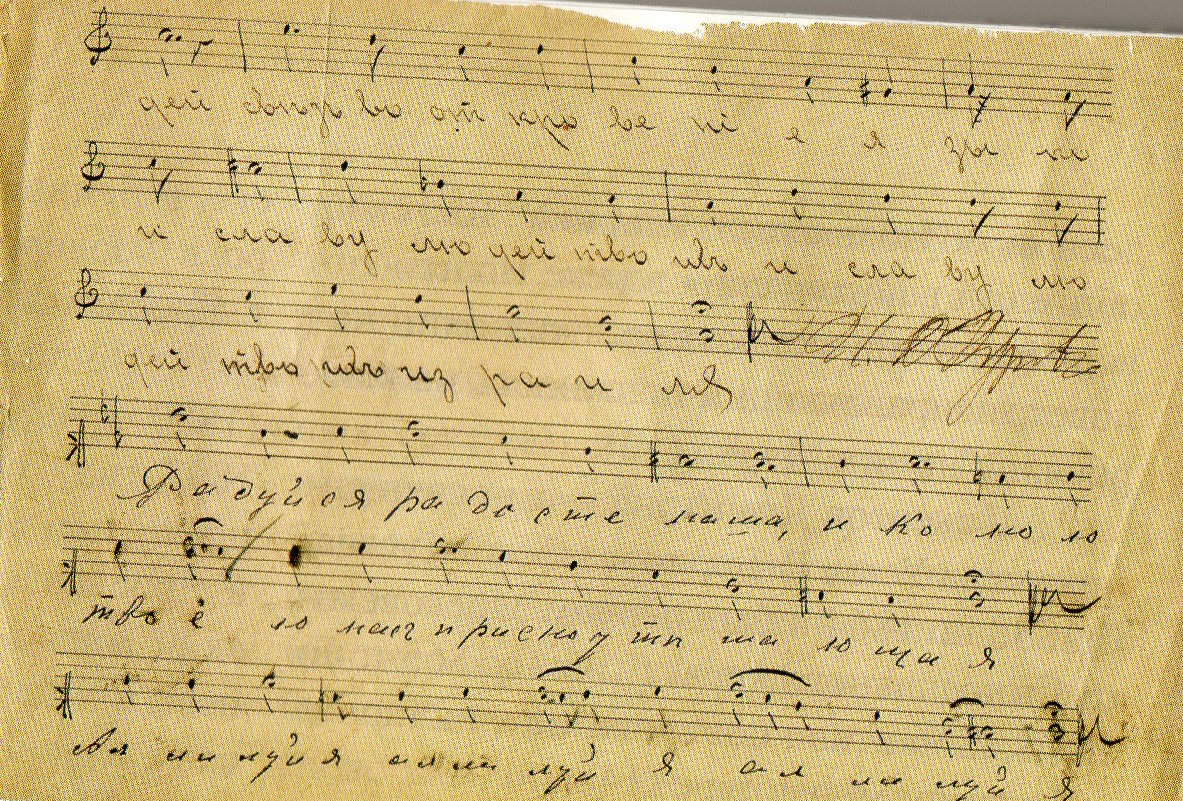 дей свѣтъ во от кро ве ні е я зы ко
и сла ву лю дей тво ихъ и сла ву лю
дей тво ихъ из ра и ля
Ра дуй ся ра до сте наша, и ко но ю
тво е ю нас присно у тѣ ша ю ща я
Ал ли луй я ал ли луй я ал ли луй я